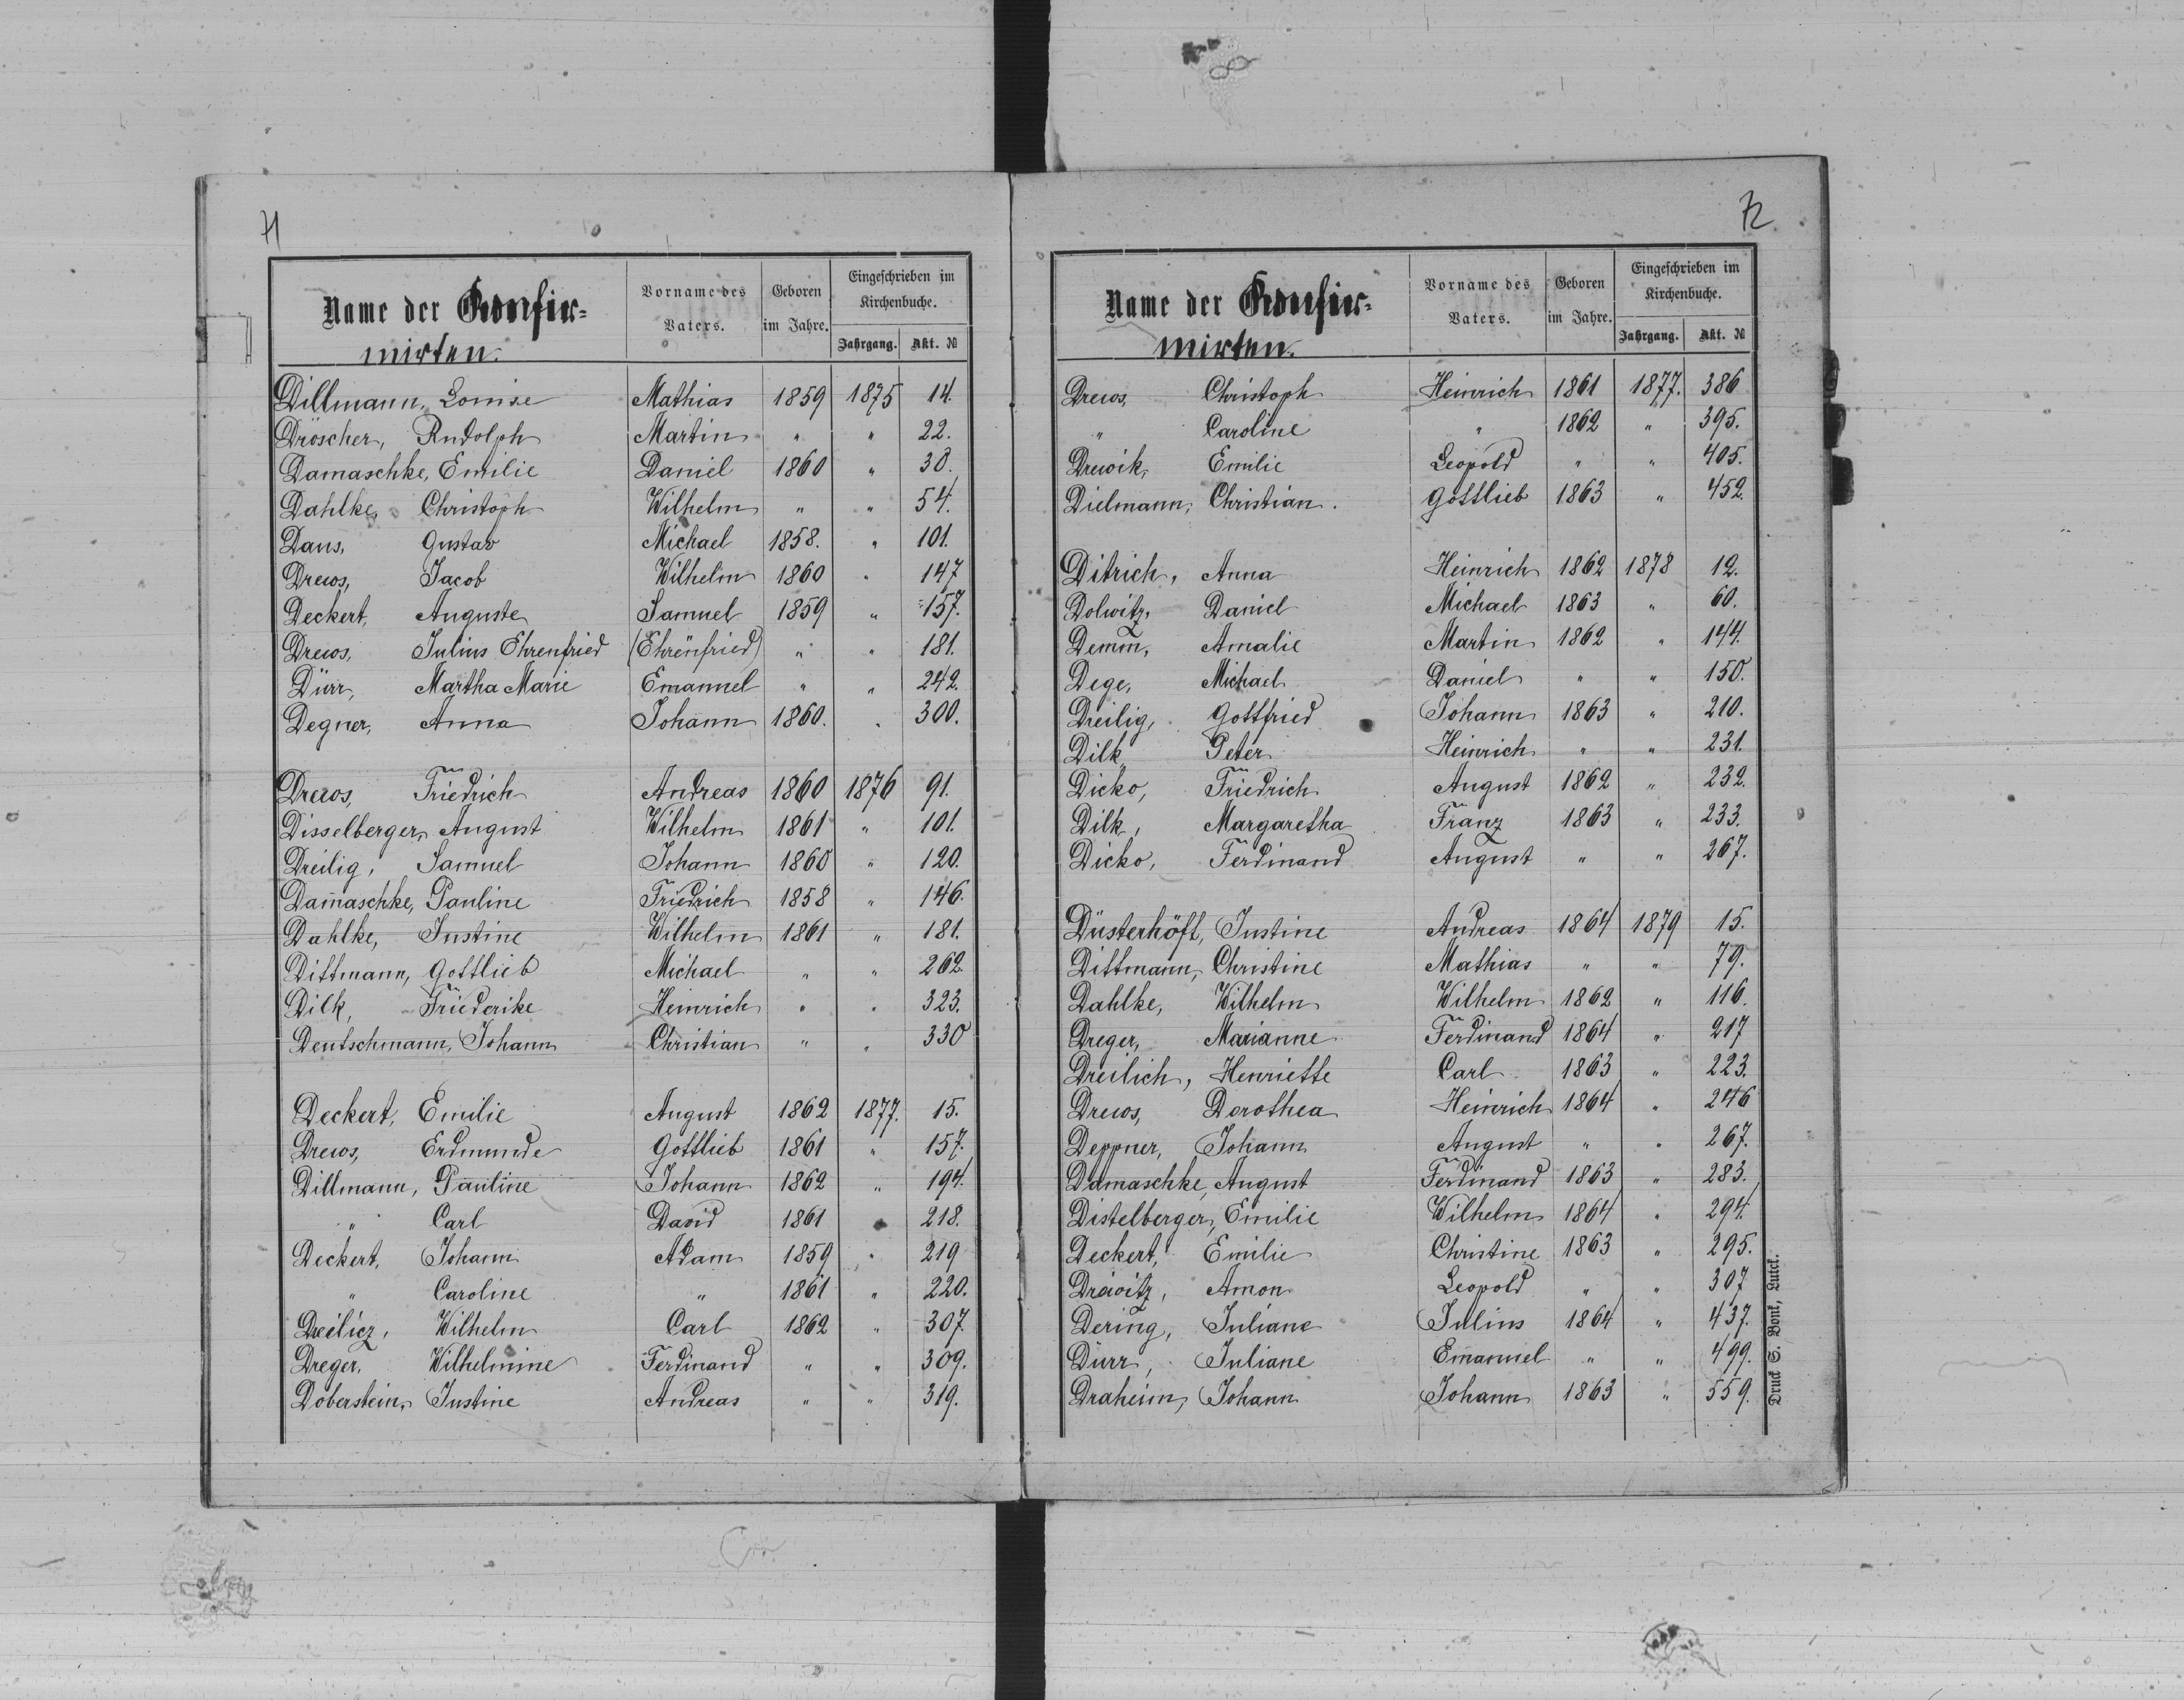 71
Name der Konfir-
mirten.
Vorname des Vaters.
Geboren im Jahre.
Eingeschrieben im Kirchenbuche.
Jahrgang. Akt. №
Dillmann, Louise Mathias 1859 1875 14.
Dröscher, Rudolph Martin " " 22.
Damaschke, Emilie Daniel 1860 " 30.
Dahlke, Christoph Wilhelm " " 54.
Daus, Gustav Michael 1858. " 101.
Drews, Jacob Wilhelm 1860 " 147
Deckert, Auguste Samuel 1859 " 157.
Drews, Julius Ehrenfried (Ehrenfried) " " 181.
Dürr, Martha Marie Emanuel " " 242.
Degner, Anna Johann 1860. " 300.
Drews, Friedrich Andreas 1860 1876 91.
Disselberger, August Wilhelm 1861 " 101.
Dreilig, Samuel Johann 1860 " 120.
Dam̄aschke, Pauline Friedrich 1858 " 146.
Dahlke, Justine Wilhelm 1861 " 181.
Dittmann, Gottlieb Michael " " 262.
Dilk, Friederike Heinrich " " 323.
Deutschmann, Johann Christian " " 330
Deckert, Emilie August 1862 1877. 15.
Drews, Erdmunde Gottlieb 1861 " 157.
Dillmann, Pauline Johann 1862 " 194.
" Carl David 1861 " 218.
Deckert, Johann Adam 1859 " 219
" Caroline " 1861 " 220.
Dreilicz, Wilhelm Carl 1862 " 307.
Dreger, Wilhelmine Ferdinand " " 309.
Doberstein, Justine Andreas " " 319.
72
Name der Konfir-
mirten.
Vorname des Vaters.
Geboren im Jahre.
Eingeschrieben im Kirchenbuche.
Jahrgang. Akt. №
Drews, Christoph Heinrich 1861 1877. 386
" Caroline " 1862 " 395.
Drewik, Emilie Leopold " " 405.
Dielmann, Christian. Gottlieb 1863 " 452.
Ditrich, Anna Heinrich 1862 1878 12.
Dolwitz, Daniel Michael 1863 " 60.
Dem̄m, Amalie Martin 1862 " 144.
Dege, Michael Daniel " " 150.
Dreilig, Gottfried Johann 1863 " 210.
Dilk Peter Heinrich " " 231.
Dicko, Friedrich August 1862 " 232.
Dilk, Margaretha Franz 1863 " 233.
Dicko, Ferdinand August " " 267.
Düsterhöft, Justine Andreas 1864 1879 15.
Dittmann, Christine Mathias " " 79.
Dahlke, Wilhelm Wilhelm 1862 " 116.
Dreger, Marianne Ferdinand 1864 " 217
Dreilich, Henriette Carl 1863 " 223.
Drews, Dorothea Heinrich 1864 " 246
Deppner, Johann August " " 267.
Damaschke, August Ferdinand 1863 " 283.
Distelberger, Emilie Wilhelm 1864 " 294.
Deckert, Emilie Christine 1863 " 295.
Drawitz, Amon Leopold " " 307
Dering, Juliane Julius 1864 " 437.
Dürr, Juliane Emanuel " " 499.
Draheim, Johann Johann 1863 " 559.
Druck S. Bonk, Lutck.